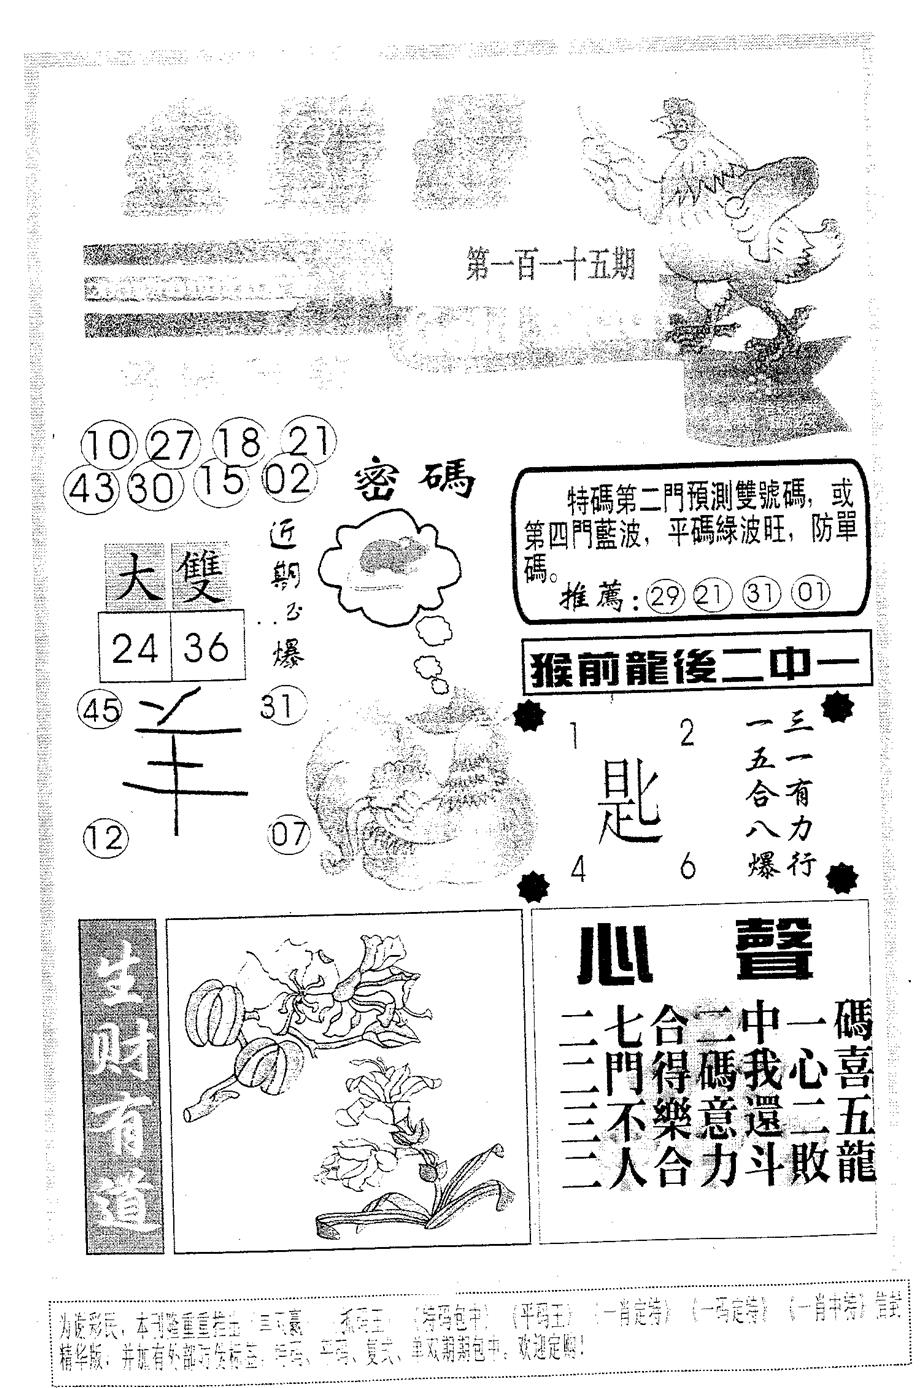 第一百一十五期
10 27 18 21
43 30 15 02
密碼
特碼第二門預測雙號碼，或
第四門藍波，平碼綠波旺，防單
碼。
推薦：29 21 31 01
大 雙
24 36
近期 爆
猴前龍後二中一
45 31
羊
12 07
1 2
匙
4 6
三一有力行
一五合八爆
生财有道
心聲
二七合二中一碼
二門得碼我心喜
三不樂意還二五
二人合力斗敗龍
彩民，本刊隆重推出 《特码包中》《平码王》《一肖定特》《一码定特》《一肖中特》信封
精华版，并加有外部 特码、平码、复式、单双期期包中，欢迎定购！